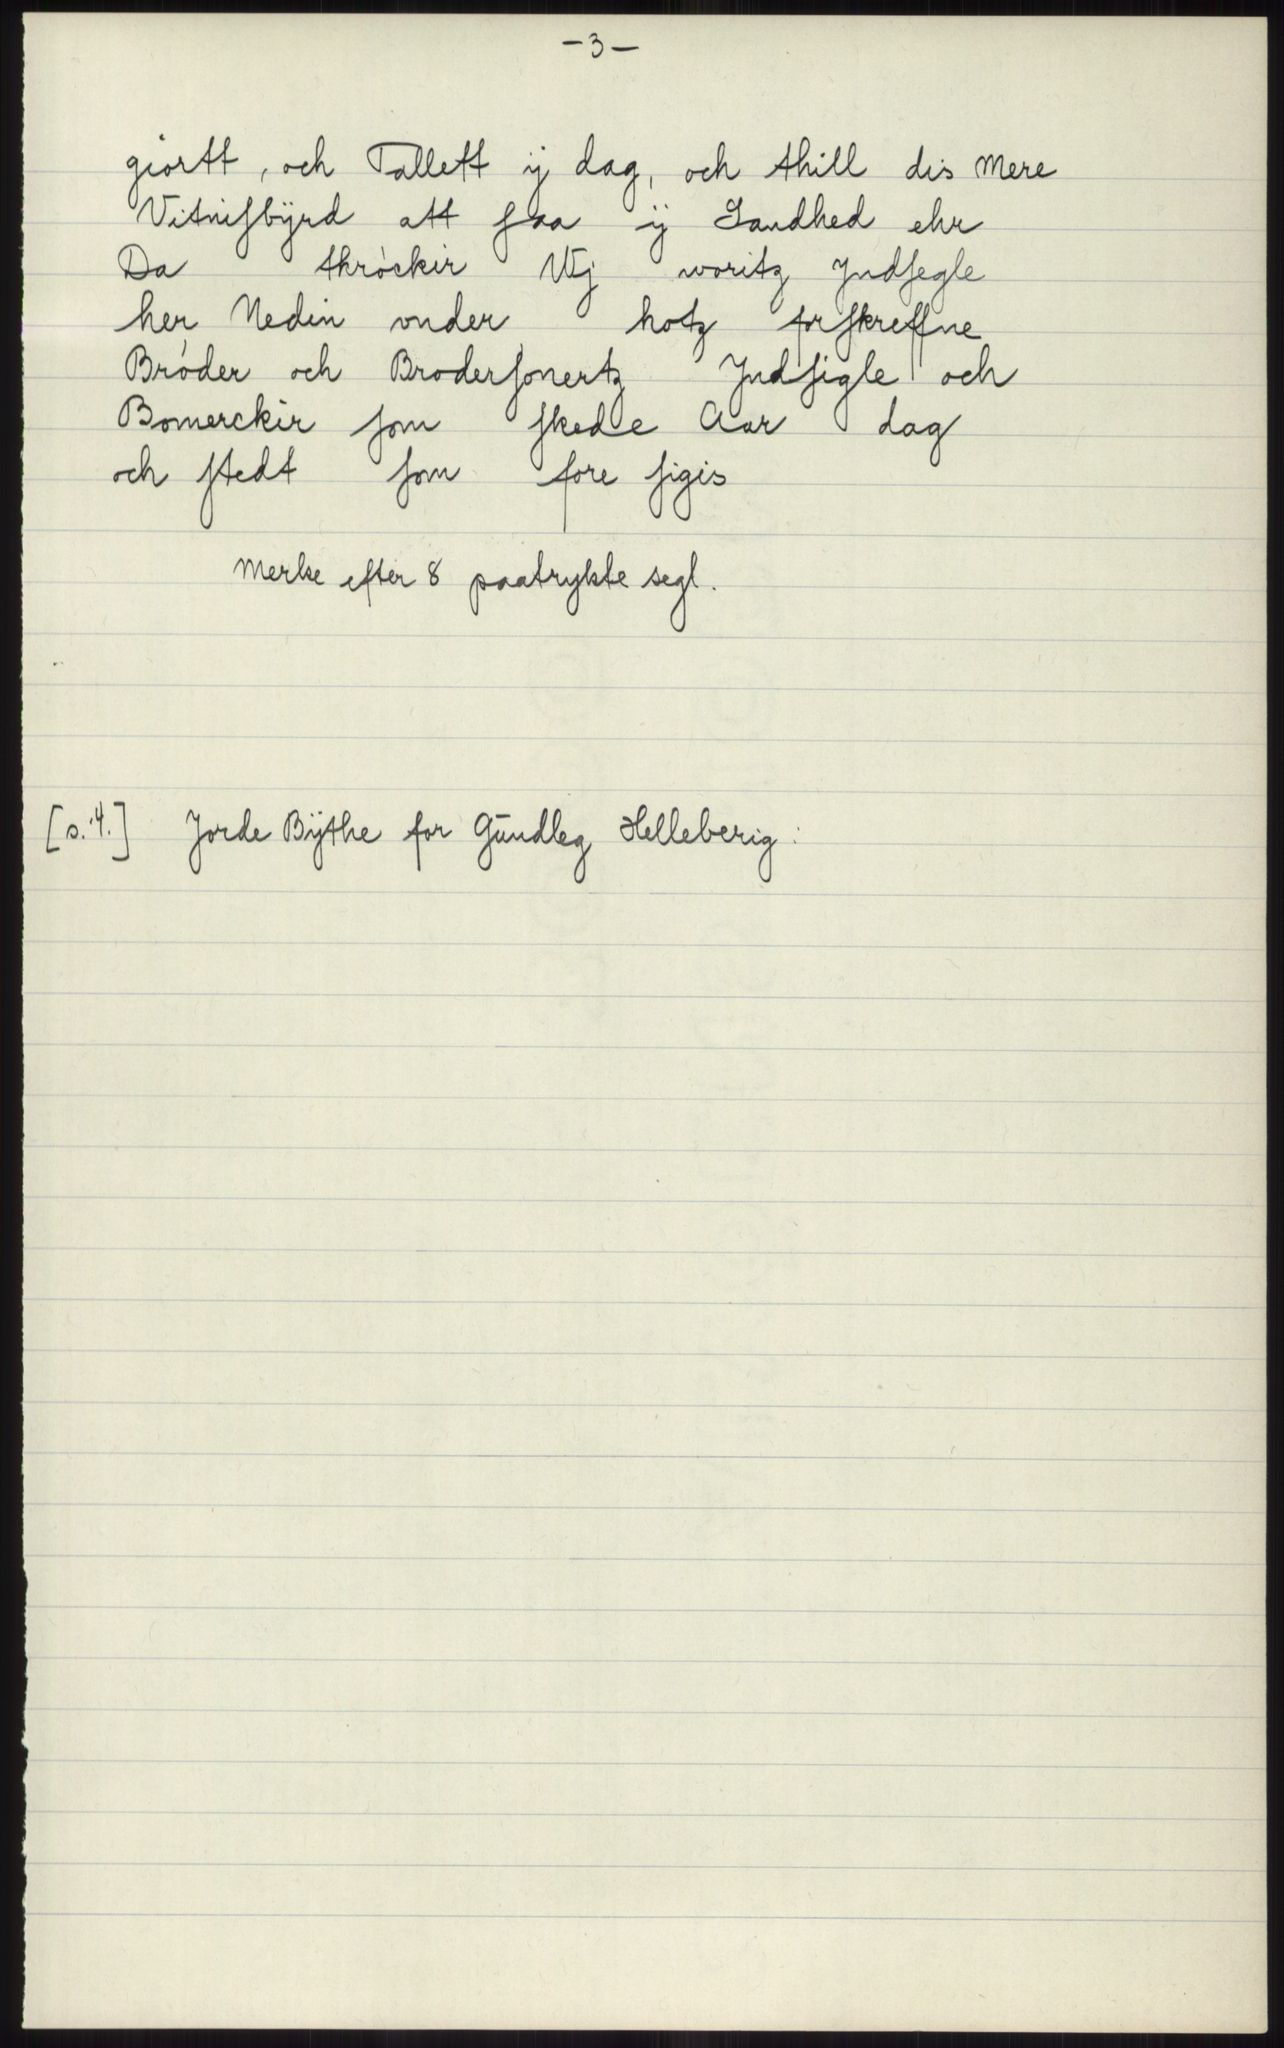 -3-
giortt, och Tallett ÿ dag, och thill dis Mere
Vitnisbÿrd att saa ÿ Sandhed ehr
Da thröckir Vj woritz Jndsegle
her Nedin vnder, hotz forskreffne
Bröder och Brodersonertz Jndsigle och
Bomerckir som skede Aar dag
och stedt som fore sigis
Merke efter 8 paatrykte segl.
[s. 4.] Jorde Bÿthe for Gundleg Helleberig: